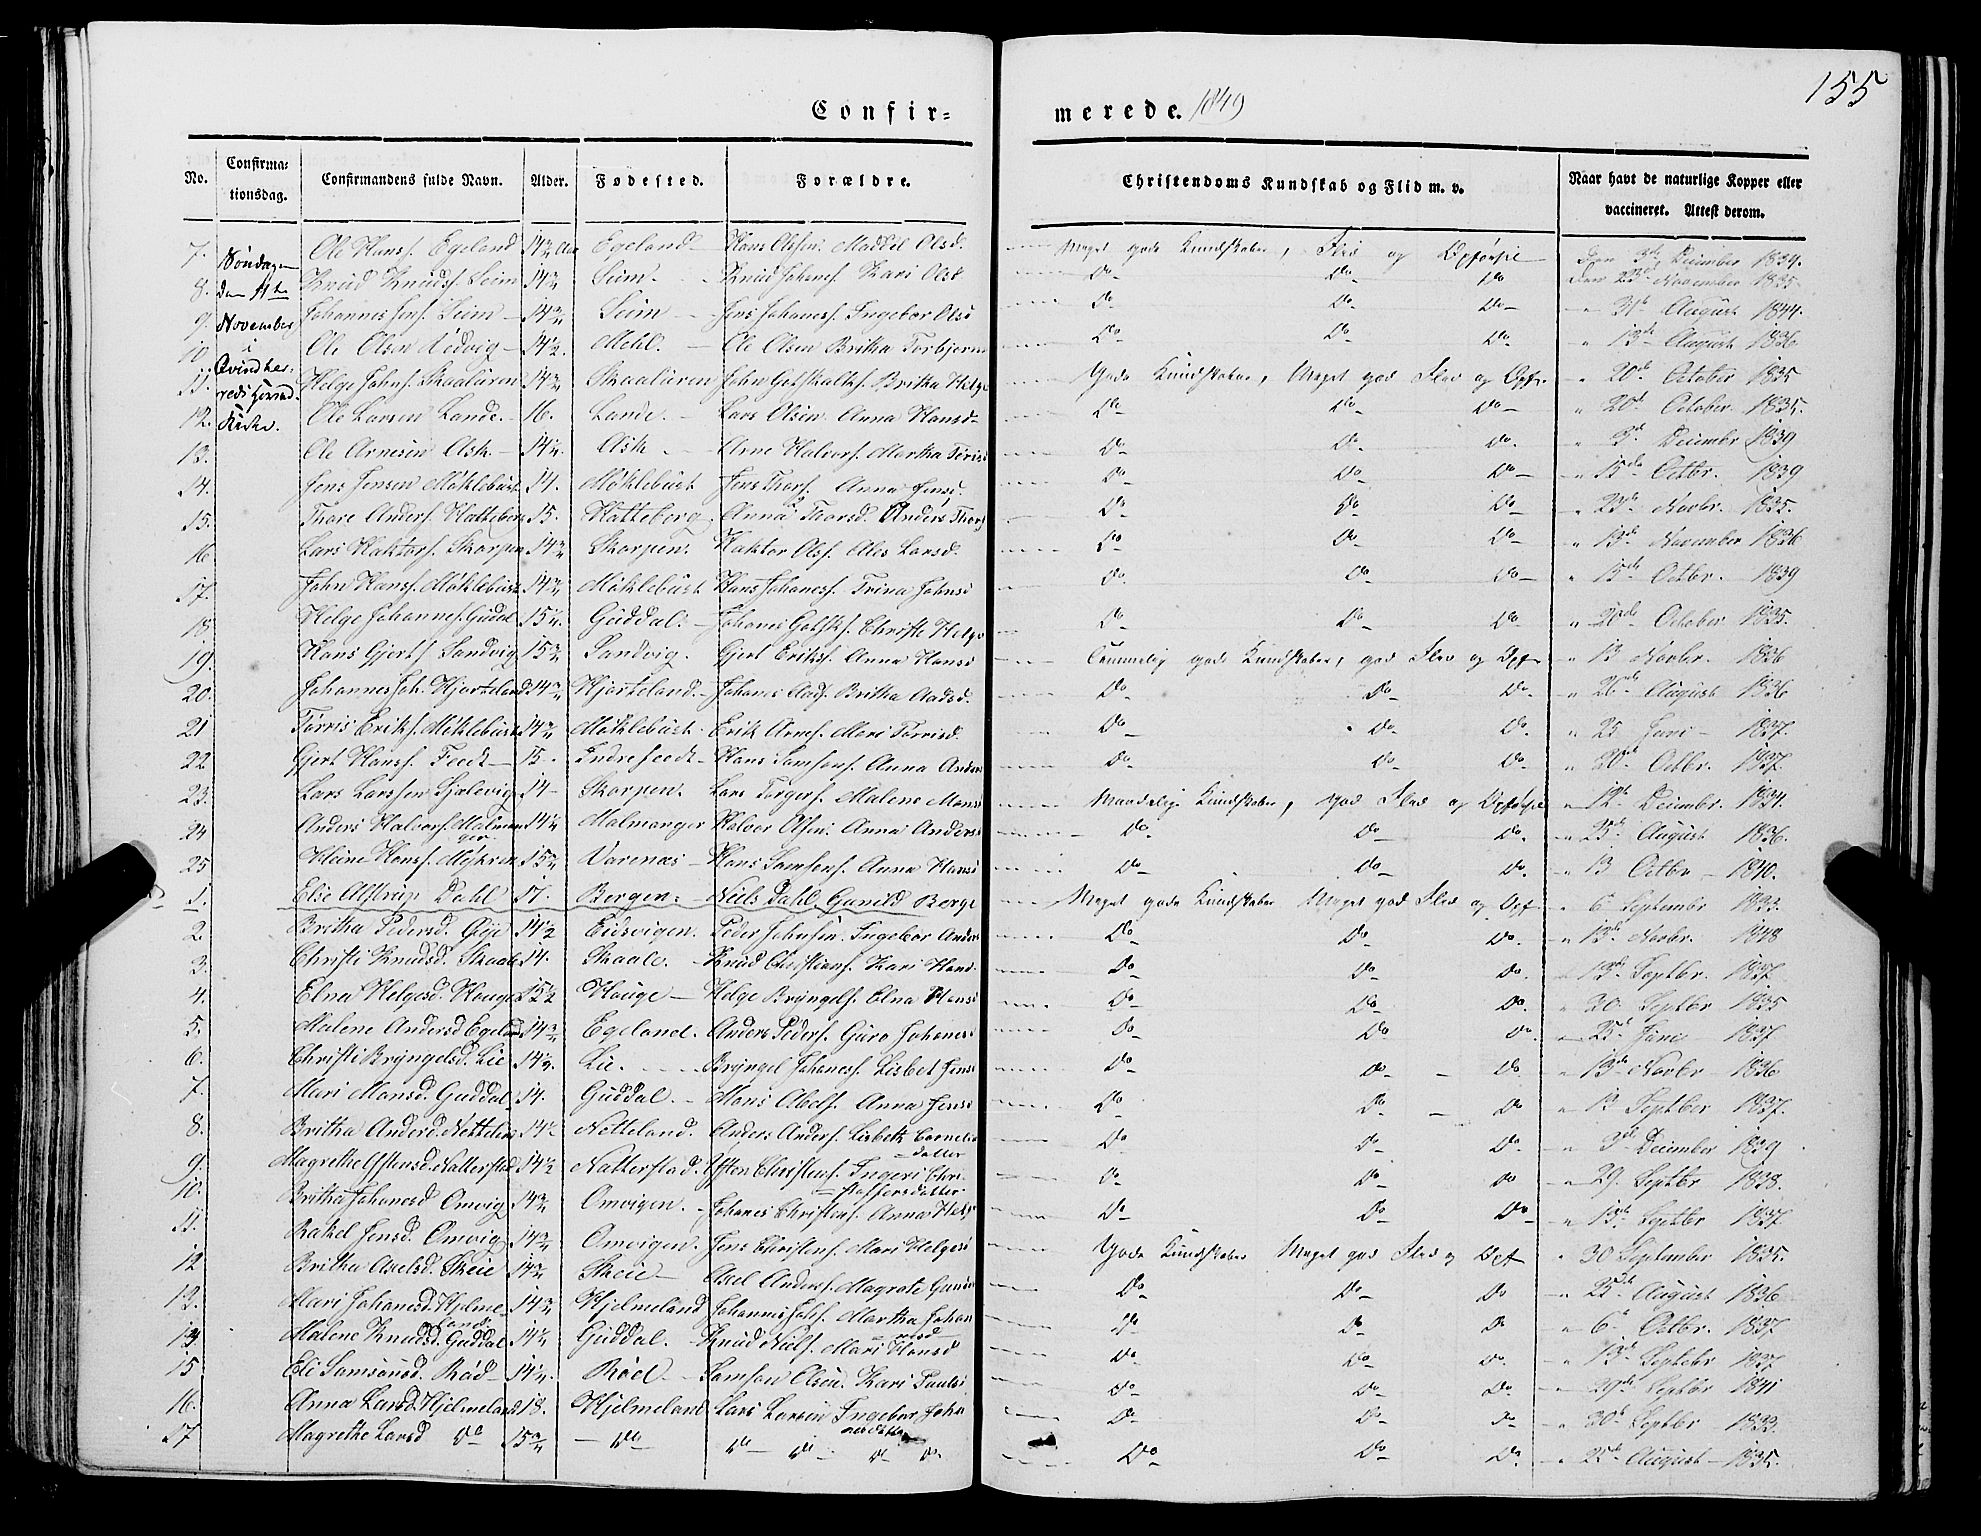 155
Confir- merede. 1849
No. Confirma-tionsdag. Confirmandens fulde Navn. Alder. Fødested. Forældre. Christendoms Kundskab og Flid m. v. Naar havt de naturlige Kopper eller vaccineret. Attest derom.
Søndagen den 11te November i Qvindherreds Kirke.
7. Ole Hanss. Egeland 14 3/4 Egeland Hans Olssen Madkil Olsd. Meget gode Kundskaber, Flid og Opførsel Den 3de December 1834.
8. Knud Knuds. Seim 14 3/4 Seim. Knud Johans. Kari Olsd Do Do Do Den 23de November 1835
9. Johannes Jens. Seim 14 3/4 Seim Jens Johanes. Ingebor Olsd Do Do Do " 31te August 1844.
10. Ole Olsen Nedvig 14 1/2. Mehl. Ole Olsen Britha Torbjorns Do Do Do " 13de August 1836
11. Helge Johns. Skaaluren 14 3/4 Skaaluren John Gotskalks. Britha Helge Gode Kundskaber, Meget god Flid og Opf. " 20de October 1835
12. Ole Larsen Lande. 16. Lande. Lars Olsen Anna Hansd Do Do Do " 20de October 1835.
13. Ole Arnesen Ask. 14 1/4. Ask Arne Halvors. Martha Torisd Do Do Do. " 3de Decembr 1839
14. Jens Jensen Møklebust 14. Møklebust Jens Thors. Anna Jensd. Do Do Do " 15de Octbr. 1839
15. Thore Anders. Hatteberg 15. Hatteberg Anna Thorsd. Anders Thors Do Do Do " 23de Novbr. 1835.
16. Lars Haktors. Skorpen 14 3/4 Skorpen. Haktor Ols. Ales Larsd. Do Do Do " 13de November 1836
17. John Hanss. Møklebust 14 3/4 Møklebust Hans Johaness. Trina Johnsd Do Do Do " 15de Octbr. 1839
18. Helge Johannes. Guddal 15 1/4. Guddal. Johanes Gotsk. Christi Helge Do Do Do " 20de October 1835.
19. Hans Gjerts Sandvig 15 3/4 Sandvig. Gjert Eriks. Anna Hansd Temmelig gode Kundskaber, god Flid og Opf. " 13 Novbr. 1836
20. Johannes Joh. Hjorteland 14 3/4 Hjorteland. Johanes Aads. Britha Aadsd. Do Do Do. " 26de August 1836
21 Torris Eriks. Møklebust 14 3/4 Møklebust. Erik Arnes. Mari Torrisd. Do Do Do. " 25 Juni 1837.
22. Gjert Hanss. Feedt 15. Indrefeedt Hans Samsons. Anna Anders Do Do Do. " 20de Octbr. 1837.
23. Lars Larssen Hjalevig 14 Skorpen. Lars Torgers. Malene Monsd Maadelig Kundskaber, god Flid og Opførsel " 12te Decembr. 1834.
24 Anders Halvors. Malmanger 14 1/4 Malmanger Halvor Olsen Anna Andersd Do. Do Do. " 25de August 1836.
25 Heine Hanss. Mykren 15 3/4 Varenæs Hans Samsons. Anna Hansd Do Do Do. " 13 Octbr 1840.
1. Else Alstrup Dahl 17. Bergen. Niels Dahl, Gunild Berge Meget gode Kundskaber Meget god Flid og Opf " 6te Septembr 1833.
2. Britha Pedersd. Gije 14 1/2 Eidsvigen. Peder Johnsen. Ingebor Anders Do Do Do. " 13de Novbr. 1848
3. Christi Knudsd. Skaale 14. Skaale. Knud Christians. Kari Hans. Do Do Do. " 13de Septbr. 1837.
4. Elna Helgesd. Hauge 15 1/2 Hauge Helge Bryngels. Elna Hansd Do Do Do. " 30 Septbr 1835
5. Malene Andersd Egeland 14 3/4 Egeland. Anders Peders. Guro Johanes Do Do Do. " 25de Juni 1837.
6. Christi Bryngelsd. Lie 14 3/4. Lie. Bryngel Johaness. Lisbet Jens Do Do Do " 13de Novbr 1836
7. Mari Monsd. Guddal 14. Guddal. Mons Abels. Anna Jensd Do Do Do " 13 Septber 1837.
8. Britha Andersd. Nettelan 14 1/2 Netteland. Anders Anders. Lisbeth Cornelisdatter Do Do Do. " 3de December 1839
9. Magrethe Ystensd. Natterstad 14 1/2 Natterstad. Ysten Christens. Ingeri Christoffersdatter Do Do Do " 29. Septbr 1838.
10. Britha Johanesd Omvig 14 3/4 Omvigen. Johanes Christens. Anna Helg Do Do Do " 13de Septbr 1837
11. Rakel Jensd. Omvig 14 3/4 Omvigen. Jens Christens. Mari Helgesd Gode Kundskaber Meget god Flid og Opf " 30 September 1835.
12 Britha Axelsd. Skeie 14 3/4 Skeie Axel Anders. Magrete Gunde Do Do Do " 25de August 1836
13. Mari Johansd. Hjelmeland 14 3/4 Hjelmeland Johannes Johs. Martha Johannesd Do Do Do " 6te Octbr. 1837
14. Malene Knudsd. Guddal 14 1/4 Guddal. Knud Niels. Mari Hansd Do Do Do. " 13de Septebr 1837
15 Eli Samsonsd. Rød 14 1/4. Røed Samson Olsen. Kari Paulsd Do Do Do. " 29de Septbr 1841
16. Anna Larsd. Hjelmeland 18. Hjelmeland Lars Larsen Ingebor Johannesdatter Do Do Do " 30te Septbr 1833
17 Magrethe Larsd Do 15 3/4 Do Do Do Do Do Do Do Do. " 25de August 1835.